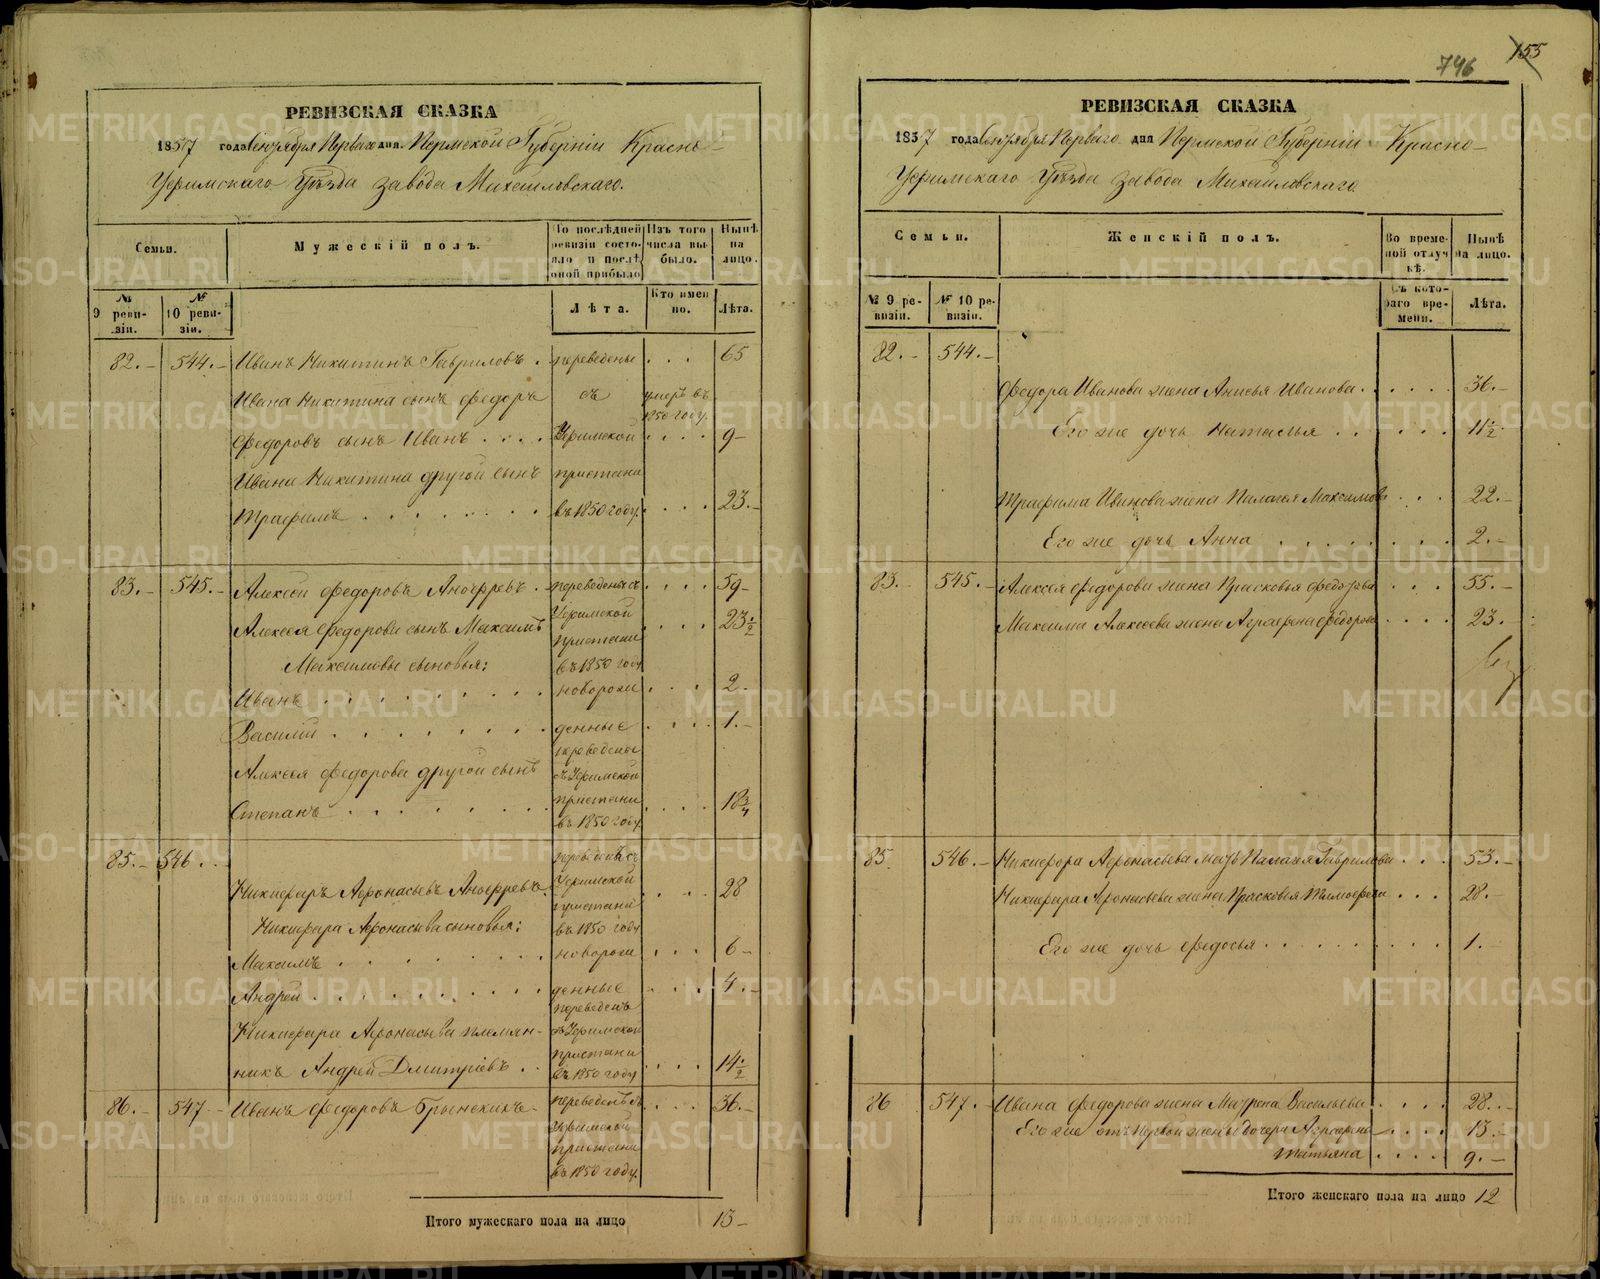 РЕВИЗСКАЯ СКАЗКА
1857 года Сентября Перваго дня. Пермской Губерніи Красно-
Уфимскаго Уѣзда завода Михайловскаго.
Семьи.
Мужескій полъ.
По послѣдней ревизіи состояло и послѣ оной прибыло
Изъ того числа выбыло.
Нынѣ на лицо.
№ 9 ревизіи.
№ 10 ревизіи.
Лѣта.
Кто именно.
Лѣта.
82.- 544.- Иванъ Никитинъ Гавриловъ . переведены . . . 65
Ивана Никитина сынъ Федоръ съ умеръ въ 1850 году.
Федоровъ сынъ Иванъ . . . . Уфимской . . . . 9-
Ивана Никитина другой сынъ пристани
Трафимъ . . . . . . . въ 1850 году. . . . . 23.-
83.- 545.- Алексей Федоровъ Анофревъ . переведены съ . . . . 59-
Алексея Федорова сынъ Максимъ Уфимской пристани . . . . 23 1/2
Максимовы сыновья: въ 1850 году
Иванъ . . . . . . . . новорож . . . 2.
Василий . . . . . . . . денные . . . . 1.-
Алексея Федорова другой сынъ переведены съ Уфимской
Степанъ . . . . . . . . пристани въ 1850 году. . . . . 18 3/4
85.- 546. . - переведенъ съ
Никифаръ Афонасьевъ Анофревъ. Уфимской пристани . . . . 28
Никифара Афонасьева сыновья: въ 1850 году
Максимъ . . . . . . . новорож . . . 6-
Андрей . . . . . . . . денные . . . . 4.-
Никифара Афонасьева племян- переведенъ съ Уфимской
никъ Андрей Дмитріевъ . . пристани въ 1850 году . . . . 14 1/2
86.- 547.- Иванъ Федоровъ переведенъ съ . . . . 36.-
Уфимской
пристани
въ 1850 году.
Итого мужескаго пола на лицо 13-
746
155
РЕВИЗСКАЯ СКАЗКА
1857 года Сентября Перваго дня Пермской Губерніи Красно-
Уфимскаго Уѣзда завода Михайловскаго
Семьи.
Женскій полъ.
Во временной отлучкѣ.
Нынѣ на лицо.
№ 9 ревизіи.
№ 10 ревизіи.
Съ котораго времени.
Лѣта.
82.- 544.-
Федора Иванова жена Анисья Иванова . . . . . 36.-
Его же дочь Наталья . . . . . . 11 1/2
Трафима Иванова жена Палагея Максимова . . . 22.-
Его же дочь Анна . . . . . . . . 2.-
83.- 545.- Алексея Федорова жена Прасковья Федорова . . . 55.-
Максима Алексеева жена Аграфена Федорова . . . . 23.-
85 546.- Никифора Афонасьева мать Палагея Гаврилова . . . 53.-
Никифара Афонасьева жена Прасковья Тимофеева . . . 28.-
Его же дочь Федосья . . . . . . . . . 1.-
86 547.- Ивана Федорова жена Матрена Васильева . . . . 28.-
Его же отъ первой жены дочери Аграфена . . . . 13.-
Татьяна . . . . 9.-
Итого женскаго пола на лицо 12
METRIKI.GASO-URAL.RU